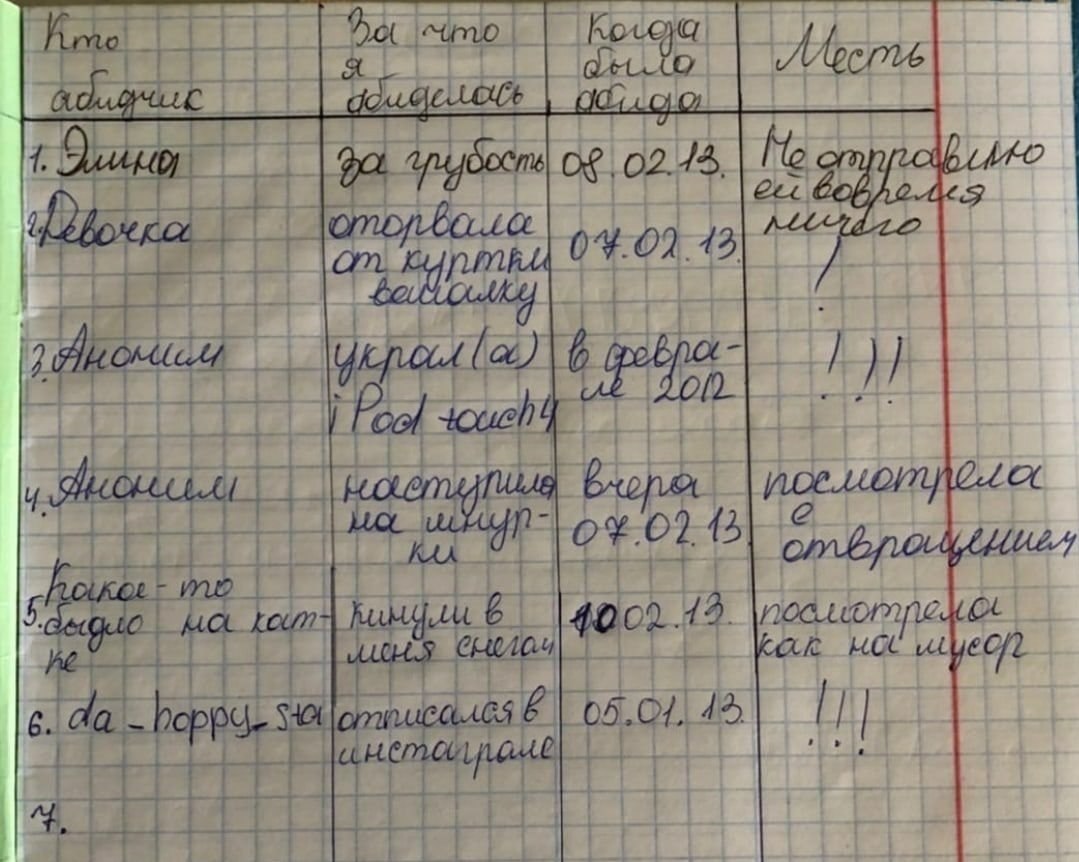 Кто абидчик
За что я абиделась
Когда была абида
Месть
1. Элина
за грубость
08.02.13.
Не отправляю ей вовремя ничего
2. Девочка
оторвала от куртки вашалку
07.02.13.
!
3. Аноним
украл(а) iPod touch 4
в февра-
ле 2012
!!!
4. Аноним
наступила на шнур-
ки
вчера 07.02.13
посмотрела с отвращением
5. Какое-то быдло на кат-
ке
кинули в меня снегом
10 02.13.
посмотрела как на мусор
6. da_hoppy_sta
отписался в инстаграме
05.01.13.
!!!
7.